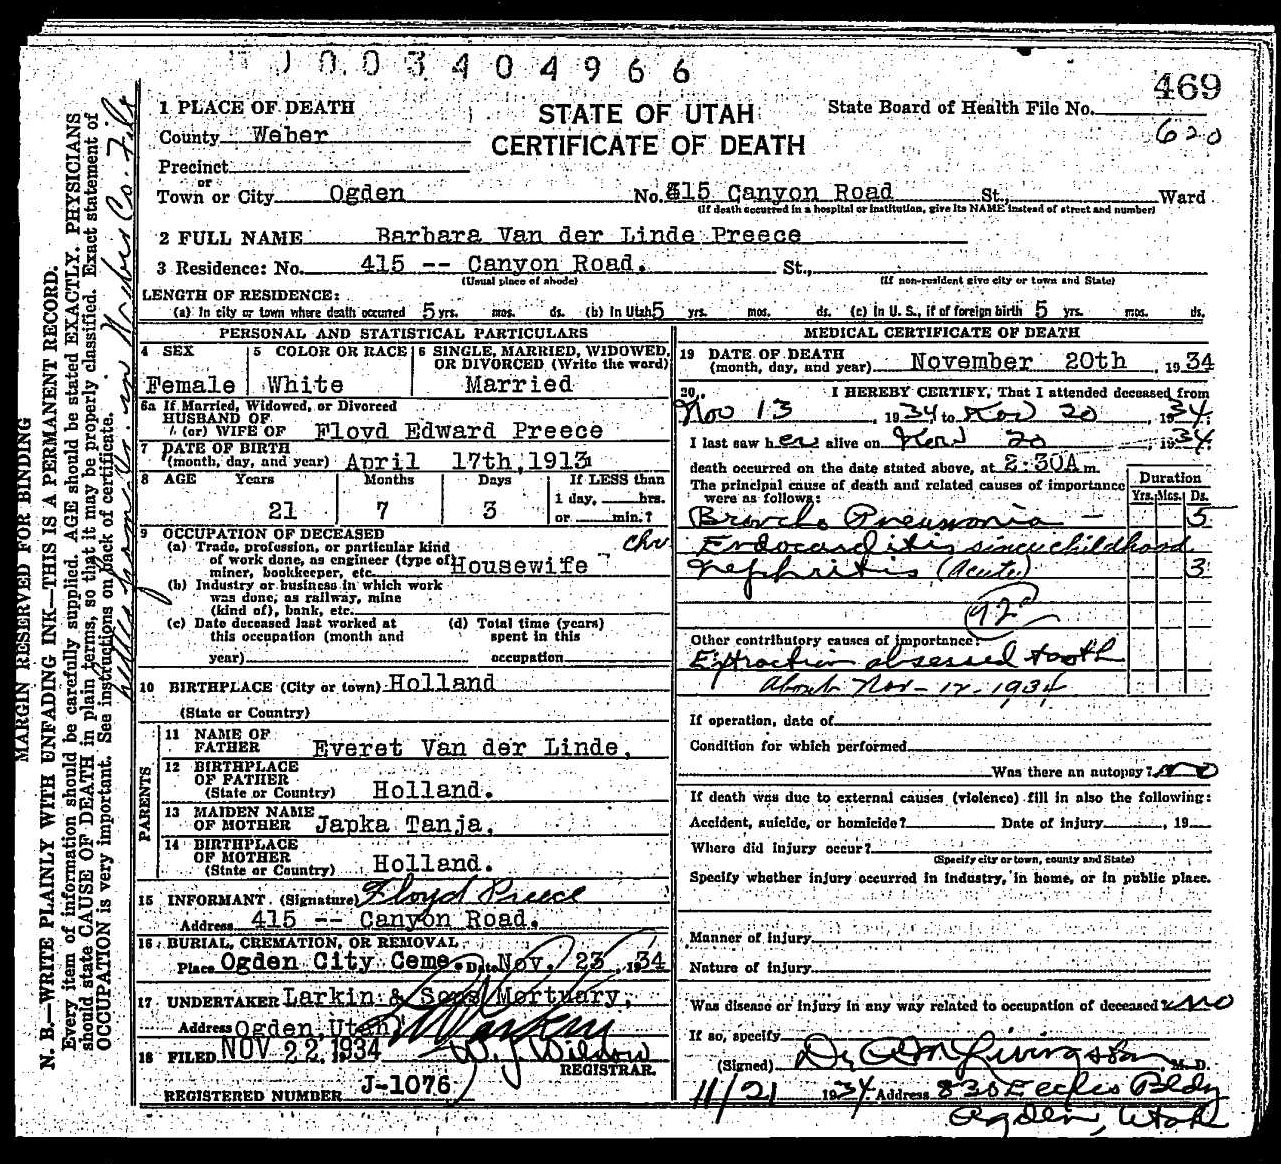 0 0 3 4 0 4 9 6 6
469
1 PLACE OF DEATH
STATE OF UTAH
State Board of Health File No.
County Weber
CERTIFICATE OF DEATH
620
Precinct
or
Town or City Ogden No. 415 Canyon Road St., Ward
(If death occurred in a hospital or institution, give its NAME instead of street and number)
2 FULL NAME Barbara Van der Linde Preece
3 Residence: No. 415 -- Canyon Road. St.,
(Usual place of abode) (If non-resident give city or town and State)
LENGTH OF RESIDENCE:
(a) In city or town where death occurred 5 yrs. mos. ds. (b) In Utah 5 yrs. mos. ds. (c) In U. S., if of foreign birth 5 yrs. mos. ds.
PERSONAL AND STATISTICAL PARTICULARS
4 SEX
Female
5 COLOR OR RACE
White
6 SINGLE, MARRIED, WIDOWED, OR DIVORCED (Write the word)
Married
6a If Married, Widowed, or Divorced
HUSBAND OF
(or) WIFE OF Floyd Edward Preece
7 DATE OF BIRTH
(month, day, and year) April 17th, 1913
8 AGE Years Months Days If LESS than
1 day, hrs.
21 7 3 or min.?
9 OCCUPATION OF DECEASED
(a) Trade, profession, or particular kind
of work done, as engineer (type of
miner, bookkeeper, etc. Housewife
(b) Industry or business in which work
was done, as railway, mine
(kind of), bank, etc.
(c) Date deceased last worked at
this occupation (month and
year)
(d) Total time (years)
spent in this
occupation
10 BIRTHPLACE (City or town) Holland
(State or Country)
PARENTS
11 NAME OF
FATHER Everet Van der Linde,
12 BIRTHPLACE
OF FATHER
(State or Country) Holland.
13 MAIDEN NAME
OF MOTHER Japka Tanja,
14 BIRTHPLACE
OF MOTHER
(State or Country) Holland.
15 INFORMANT (Signature) Floyd Preece
Address 415 -- Canyon Road.
16 BURIAL, CREMATION, OR REMOVAL
Place Ogden City Ceme. Date Nov. 23, 1934
17 UNDERTAKER Larkin & Sons Mortuary,
Address Ogden, Utah
18 FILED NOV 22 1934 W. J. Wilson
REGISTRAR.
REGISTERED NUMBER J-1076
MEDICAL CERTIFICATE OF DEATH
19 DATE OF DEATH
(month, day, and year) November 20th, 1934
20. I HEREBY CERTIFY, That I attended deceased from
Nov 13, 1934 to Nov 20, 1934.
I last saw her alive on Nov 20, 1934.
death occurred on the date stated above, at 2:30A m.
The principal cause of death and related causes of importance
were as follows:
Duration
Yrs. Mos. Ds.
Broncho Pneumonia - 5
chr
Endocarditis since childhood
Nephritis (Acute) 3
92
Other contributory causes of importance:
Extraction absessed tooth
about Nov-12-1934
If operation, date of
Condition for which performed
Was there an autopsy? no
If death was due to external causes (violence) fill in also the following:
Accident, suicide, or homicide? Date of injury, 19
Where did injury occur?
(Specify city or town, county and State)
Specify whether injury occurred in industry, in home, or in public place.
Manner of injury
Nature of injury
Was disease or injury in any way related to occupation of deceased? no
If so, specify
(Signed) Dr O M Livingston M. D.
11/21 1934 Address 830 Eccles Bldg
Ogden, Utah
MARGIN RESERVED FOR BINDING
N. B.—WRITE PLAINLY WITH UNFADING INK—THIS IS A PERMANENT RECORD.
Every item of information should be carefully supplied. AGE should be stated EXACTLY. PHYSICIANS
should state CAUSE OF DEATH in plain terms, so that it may be properly classified. Exact statement of
OCCUPATION is very important. See instructions on back of certificate.
in Weber Co. File